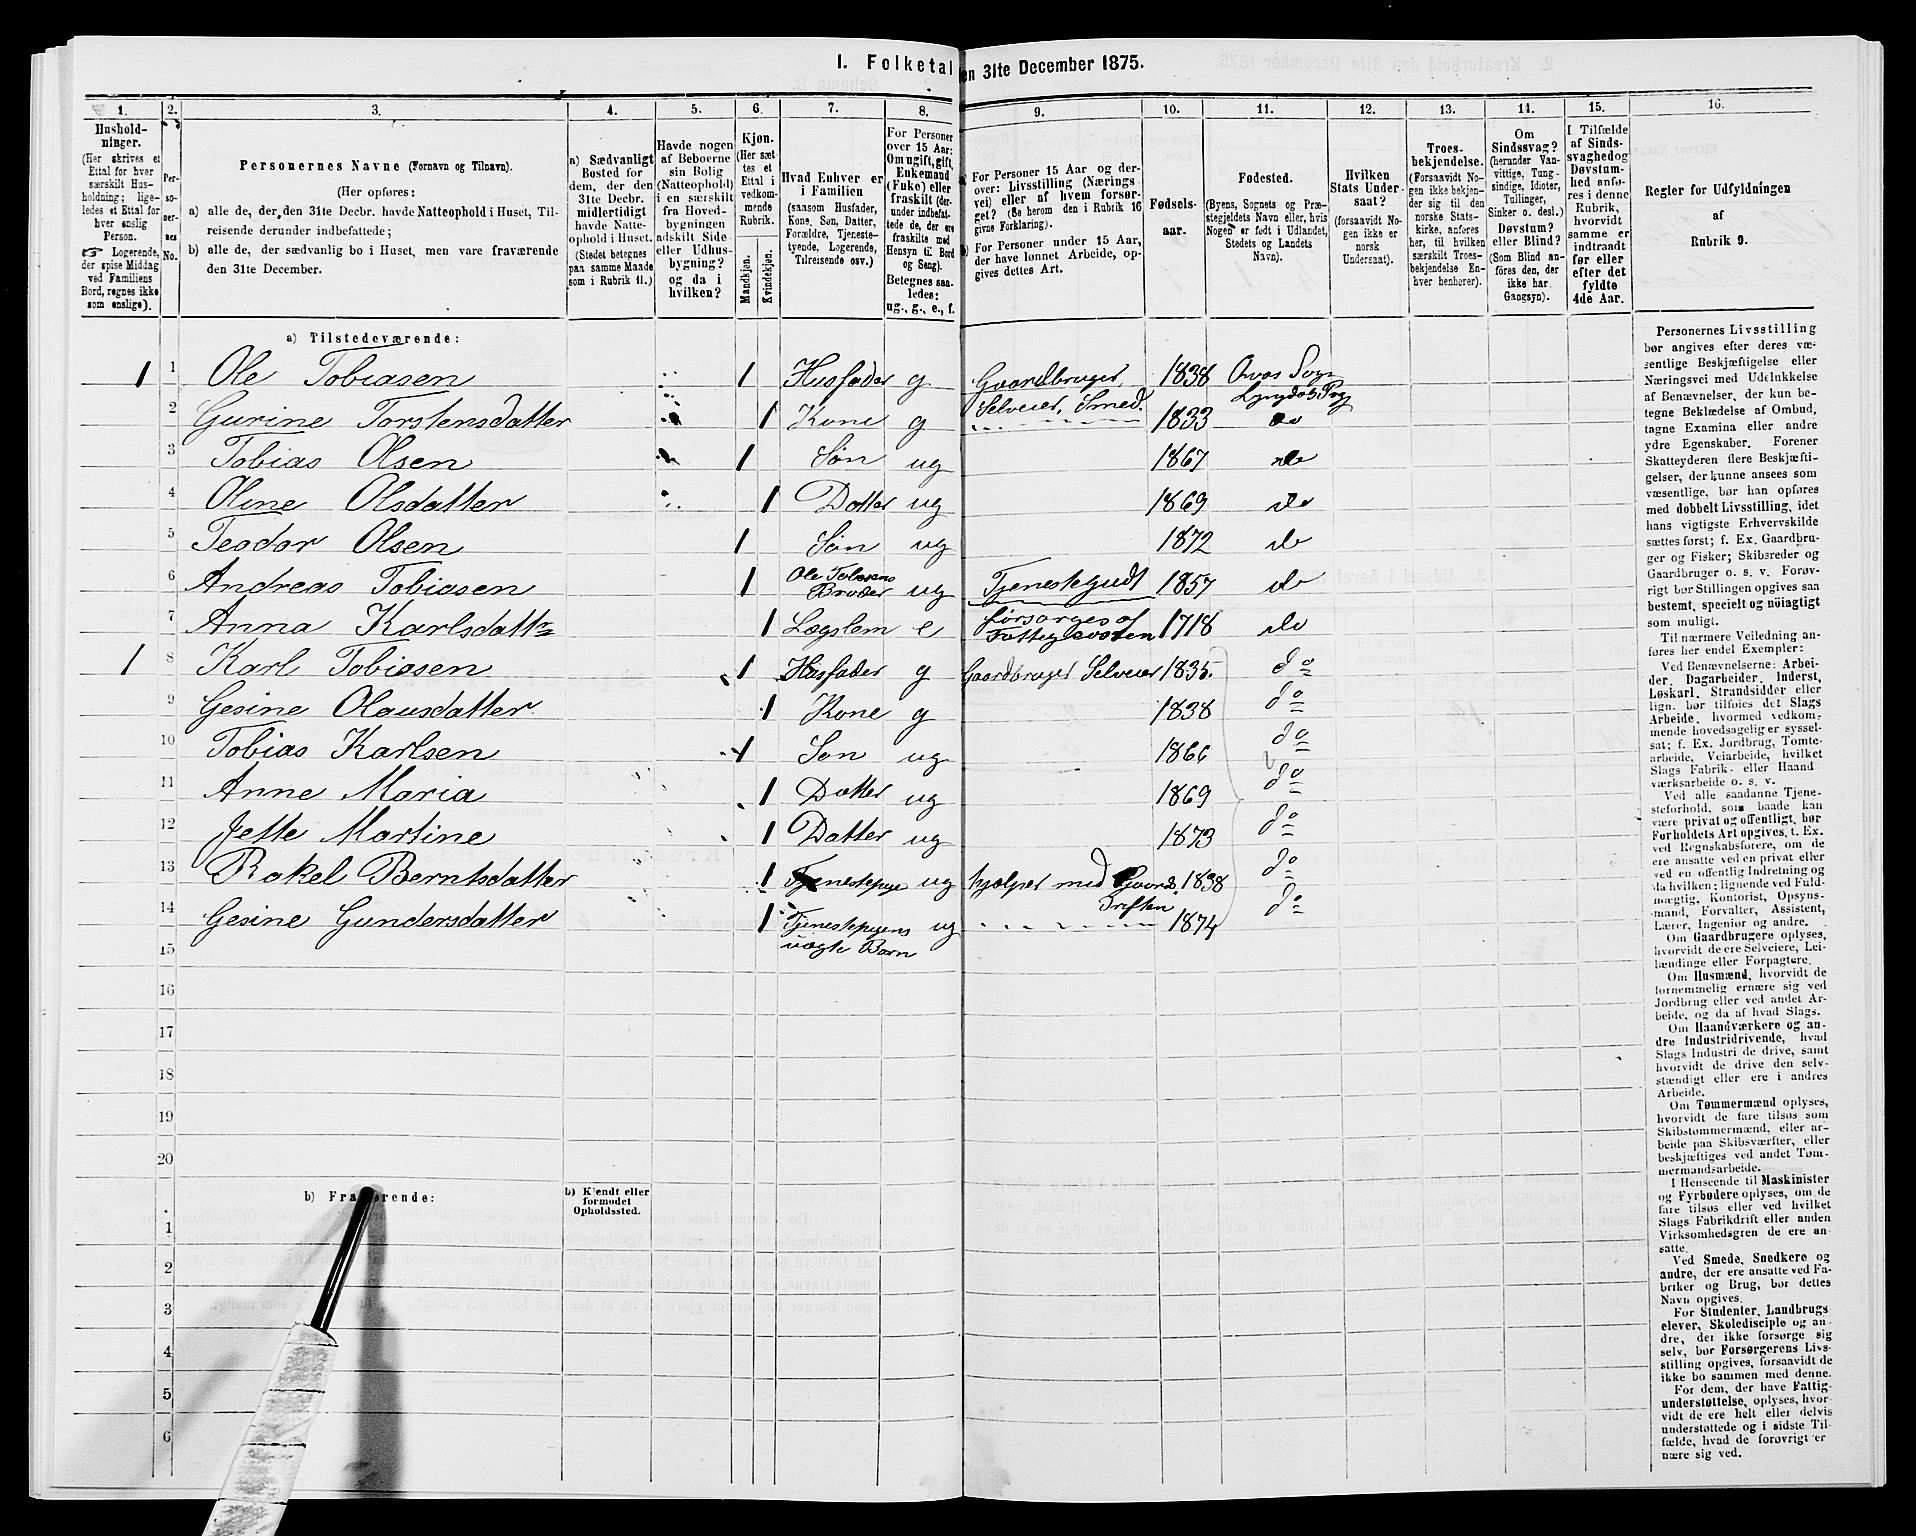 1. Folketal den 31te December 1875.
1. 2. 3. 4. 5. 6. 7. 8. 9. 10. 11. 12. 13. 14. 15. 16.
Hushold-
ninger.
(Her skrives et
Ettal for hver
særskilt Hus-
holdning; lige-
ledes et Ettal for
hver enslig
Person.
☞ Logerende,
der spise Middag
ved Familiens
Bord, regnes ikke
som enslige).
Per-
so-
ner-
nes
No.
Personernes Navne (Fornavn og Tilnavn).
(Her opføres:
a) alle de, der den 31te Decbr. havde Natteophold i Huset, Til-
reisende derunder indbefattede;
b) alle de, der sædvanlig bo i Huset, men vare fraværende
den 31te December.
a) Sædvanligt
Bosted for
dem, der den
31te Decbr.
midlertidigt
havde Natte-
ophold i Huset.
(Stedet betegnes
paa samme Maade
som i Rubrik 11.)
Havde nogen
af Beboerne
sin Bolig
(Natteophold)
i en særskilt
fra Hoved-
bygningen
adskilt Side-
eller Udhus-
bygning?
og da i
hvilken?
Kjøn.
(Her sæt-
tes et
Ettal i
vedkom-
mende
Rubrik.
Mandkjøn.
Kvindekjøn.
Hvad Enhver er
i Familien
(saasom Husfader,
Kone, Søn, Datter,
Forældre, Tjeneste-
tyende, Logerende,
Tilreisende osv.)
For Personer
over 15 Aar:
Om ugift, gift,
Enkemand
(Enke) eller
fraskilt (der-
under indbefat-
tede de, der ere
fraskilte med
Hensyn til Bord
og Seng).
Betegnes saa-
ledes:
ug., g., e., f.
a) For Personer 15 Aar og der-
over: Livsstilling (Nærings-
vei) eller af hvem forsør-
get? (Se herom den i Rubrik 16
givne Forklaring).
b) For Personer under 15 Aar,
der have lønnet Arbeide, op-
gives dettes Art.
Fødsels-
aar.
Fødested.
(Byens, Sognets og Præ-
stegjeldets Navn eller, hvis
Nogen er født i Udlandet,
Stedets og Landets
Navn).
Hvilken
Stats Under-
saat?
(forsaavidt No-
gen ikke er
norsk
Undersaat).
Troes-
bekjendelse.
(Forsaavidt No-
gen ikke bekjen-
der sig til den
norske Stats-
kirke, anføres
her, til hvilken
særskilt Troes-
bekjendelse En-
hver henhører).
Om
Sindssvag?
(herunder Van-
vittige, Tung-
sindige, Idioter,
Tullinger,
Sinker o. desl.)
Døvstum?
eller Blind?
(Som Blind an-
føres den, der
ikke har
Gangsyn).
I Tilfælde
af Sinds-
svaghed og
Døvstum-
hed anfø-
res i denne
Rubrik,
hvorvidt
samme er
indtraadt
før eller
efter det
fyldte
4de Aar.
Regler for Udfyldningen
af
Rubrik 9.
a) Tilstedeværende:
1 1 Ole Tobiasen 1 Husfader g Gaardbruger, Selveier, Smed. 1838 Avas Sogn Lyngdals Prg
2 Gurine Torstensdatter 1 Kone g 1833 do
3 Tobias Olsen 1 Søn ug 1867 do
4 Oline Olsdatter 1 Datter ug 1869 do
5 Teodor Olsen 1 Søn ug 1872 do
6 Andreas Tobiasen 1 Ole Tobiasens Broder ug Tjenestegudt 1857 do
7 Anna Karlsdattr 1 Lægslem e forsørges af Fattigvæsen 1718 do
1 8 Karl Tobiasen 1 Husfader g Gaardbruger Selveier 1835. do
9 Gesine Olausdatter 1 Kone g 1838 do
10 Tobias Karlsen 1 Søn ug 1866 do
11 Anne Maria 1 Datter ug 1869 do
12 Jette Martine 1 Datter ug 1873 do
13 Rakel Berntsdatter 1 Tjenestepige ug hjælper med Gaards Driften 1838 do
14 Gesine Gundersdatter 1 Tjenestepigens uægte Barn ug 1874 do
15
16
17
18
19
20
b) Fraværende:
b) Kjendt eller
formodet
Opholdssted.
1
2
3
4
5
6
Personernes Livsstilling
bør angives efter deres væ-
sentlige Beskjæftigelse eller
Næringsvei med Udelukkelse
af Benævnelser, der kun be-
tegne Beklædelse af Ombud,
tagne Examina eller andre
ydre Egenskaber. Forener
Skatteyderen flere Beskjæfti-
gelser, der kunne ansees som
væsentlige, bør han opføres
med dobbelt Livsstilling, idet
hans vigtigste Erhvervskilde
sættes først; f. Ex. Gaardbru-
ger og Fisker; Skibsreder og
Gaardbruger o. s. v. Forøv-
rigt bør Stillingen opgives saa
bestemt, specielt og nøiagtigt
som muligt.
Til nærmere Veiledning an-
føres her endel Exempler:
Ved Benævnelserne: Arbei-
der, Dagarbeider, Inderst,
Løskarl, Strandsidder eller
lign. bør tilføies det Slags
Arbeide, hvormed vedkom-
mende hovedsagelig er syssel-
sat; f. Ex. Jordbrug, Tomte-
arbeide, Veiarbeide, hvilket
Slags Fabrik- eller Haand
værksarbeide o. s. v.
Ved alle saadanne Tjene-
steforhold, som baade kan
være privat og offentligt, bør
Forholdets Art opgives, t. Ex.
ved Regnskabsførere, om de
ere ansatte ved en privat eller
ved en offentlig Indretning og
da hvilken; lignende ved Fuld-
mægtig, Kontorist, Opsyns-
mand, Forvalter, Assistent,
Lærer, Ingeniør og andre.
Om Gaardbrugere oplyses,
hvorvidt de ere Selveiere, Lei-
lændinge eller Forpagtere.
Om Husmænd, hvorvidt de
fornemmelig ernære sig ved
Jordbrug eller ved andet Ar-
beide, og da af hvad Slags.
Om Haandværkere og an-
dre Industridrivende, hvad
Slags Industri de drive, samt
hvorvidt de drive den selv-
stændigt eller ere i andres
Arbeide.
Om Tømmermænd oplyses,
hvorvidt de fare tilsøs som
Skibstømmermænd, eller ar-
beide paa Skibsværfter, eller
beskjæftiges ved andet Tøm-
mermandsarbeide.
I Henseende til Maskinister
og Fyrbødere oplyses, om de
fare tilsøs eller ved hvilket
Slags Fabrikdrift eller anden
Virksomhedsgren de ere an-
satte.
Ved Smede, Snedkere og
andre, der ere ansatte ved Fa-
briker og Brug, bør dettes
Navn opgives.
For Studenter, Landbrugs
elever, Skoledisciple og an-
dre, der ikke forsørge sig
selv, bør Forsørgerens Livs-
stilling opgives, forsaavidt de
ikke bo sammen med denne.
For dem, der have Fattig-
understøttelse, oplyses, hvor-
vidt de ere helt eller delvis
understøttede og i sidste Til-
fælde, hvad de forøvrigt er
nære sig ved.